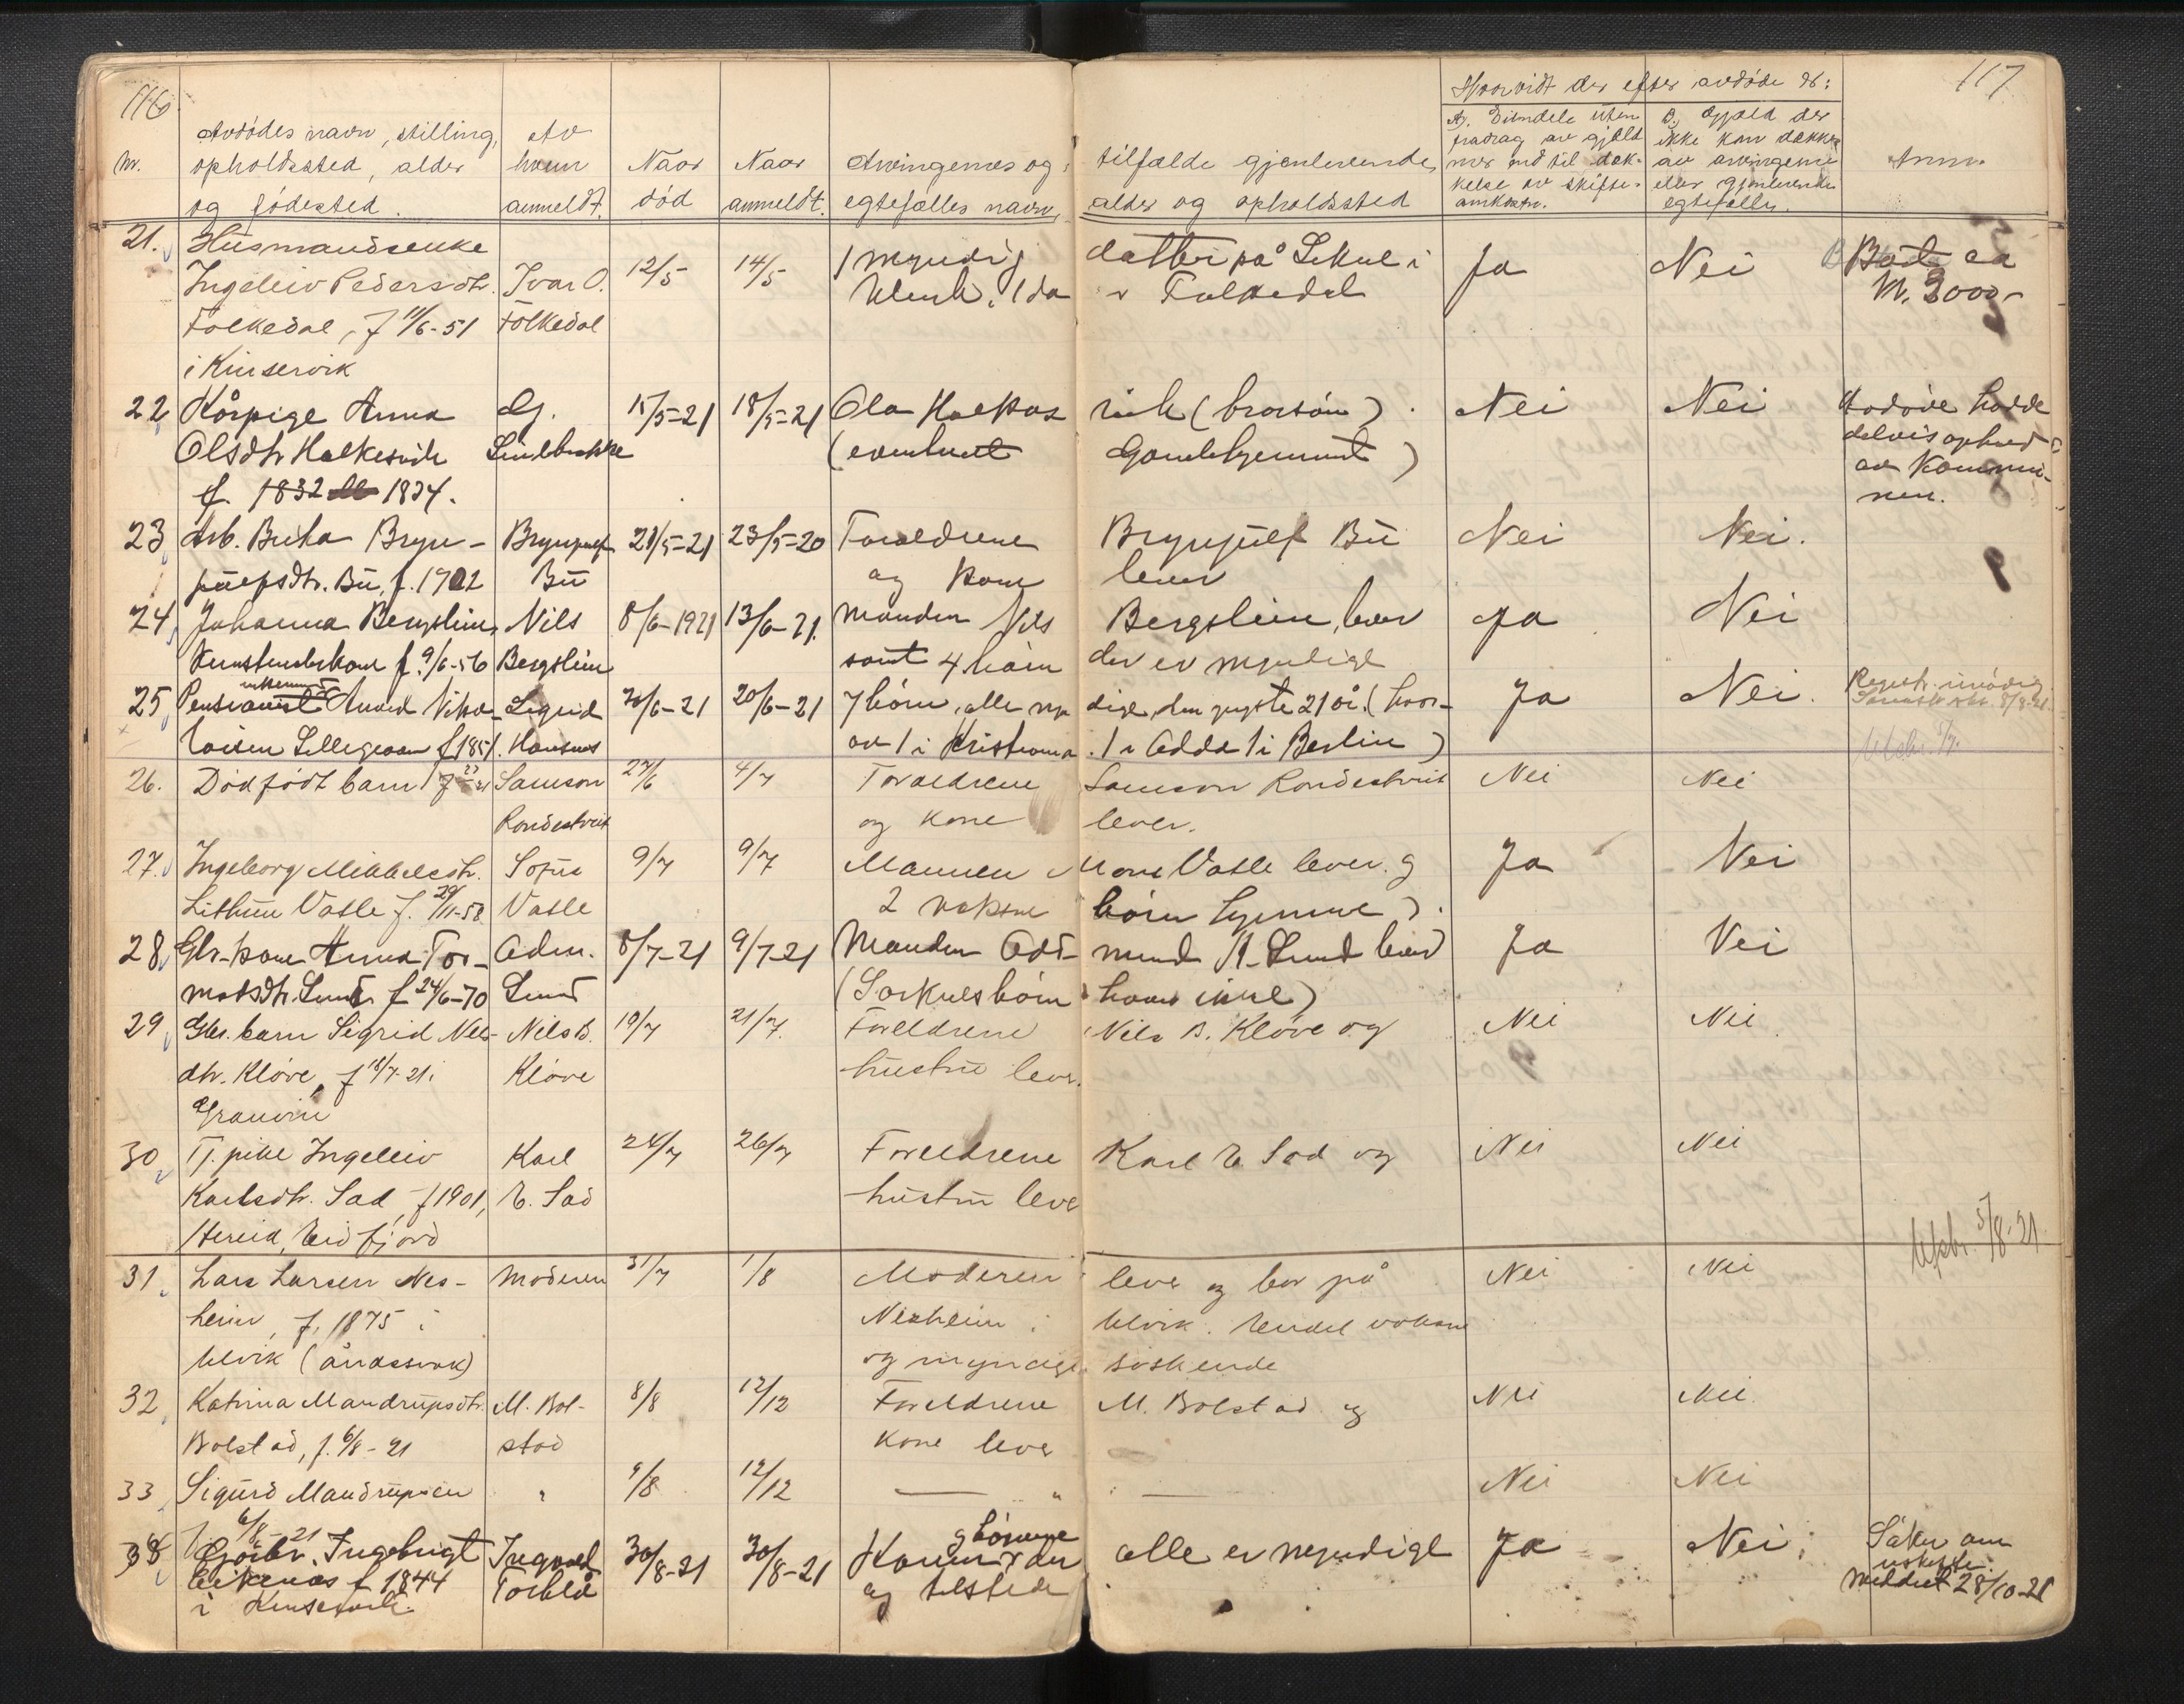 116
117
Nr.
Avdødes navn, stilling,
opholdssted, alder
og fødested.
Av
hvem
anmeldt.
Naar
død
Naar
anmeldt.
Arvingernes og i tilfælde gjenlevende
egtefælles navn, alder og opholdssted
Hvorvidt der efter avdøde er:
A). Eiendele uten
fradrag av gjæld
mer end til dæk-
kelse av skifte-
omkostn.
B) Gjæld der
ikke kan dækkes
av arvingerne
eller gjenlevende
egtefælle.
Anm.
21. Husmandsenke
Ingeleiv Pedersdtr. Ivar O. 12/5 14/5 1 myndig datter på Lekve i Ja Nei Bost ca
Folkedal, f 11/6-51 Folkedal Ulvik, 1 do i Folkedal kr. 3000,-
i Kinservik
22 Kårpige Anna G. 15/5-21 18/5-21 Ola Halkes vik (brorsøn). Nei Nei Avdøde hadde
Olsdtr Halkesvik Lindebrekke (eventuelt Gamlehjemmet) delvis ophold
f. 1832 1834. av kommu-
nen.
23 Arb. Brita Bryn- Brynjulf 21/5-21 23/5-20 Forældrene Brynjulf Bu Nei Nei.
julfsdtr. Bu, f. 1902 Bu og kone lever
24 Johanna Bergslien, Nils 8/6-1921 13/6-21. Manden Nils Bergslien, lever Ja Nei
f 9/6-56 Bergslien samt 4 børn der er myndige
25 Pensionist Amund Niko- Sigrid 20/6-21 20/6-21 7 børn, alle myndige, den yngste 21 år (hvor- Ja Nei.
laisen Lillegraven f 1851. av 1 i Kristiania. 1 i Odda 1 i Berlin)
26. Dødfødt barn f 27/6-21 Samson 27/6 4/7 Forældrene Samson Rondestveit Nei Nei
Rondestveit og kone lever.
27. Ingeborg Mikkelsdtr. Sofus 9/7 9/7 Mannen Mons Vatle lever og Ja Nei
Vatle f. 29/11-58 Vatle 2 voksne børn hjemme).
28 Gbr-kone Anna Tor- Odm. 8/7-21 9/7-21 Manden Odmund A. Lund lever Ja Nei
modsdtr. Lund f 24/6-70 Lund (Særkulsbørn haves ikke)
29 Gbr. barn Sigrid Nils- Nils B. 19/7 21/7. Foreldrene Nils B. Kløve og Nei Nei
dtr. Kløve, f 18/7-21 i Kløve hustru lever.
Granvin
30 Tj. pike Ingeleiv Karl 24/7 26/7 Foreldrene Karl E Sæd og Nei Nei
Karlsdtr. Sæd, f 1901, E. Sæd hustru leve
Hereid, Eidfjord 5/8-21
31. Lars Larsen Nes- Moderen 31/7 1/8 Moderen lever og bor på Nei Nei
heim, f. 1875 i Nesheim i Ulvik. Endel voksne
Ulvik (åndssvak) og myndige søskende
32 Katrina Mandrupsdtr. M. Bol- 8/8 12/12 Foreldrene M. Bolstad og Nei Nei
Bolstad, f. 6/8-21 stad kone lever
33 Sigurd Mandrupsen " 9/8 12/12 — " — Nei Nei
f. 6/8-21
34 Gårbr. Ingebrigt Ingvald 30/8-21 30/8-21 Konen og børnene alle er myndige Ja Nei. Søker om
Eiknes f 1844 Torblå og tilstede uskifte
i Kinservik Meddelt 28/10-21